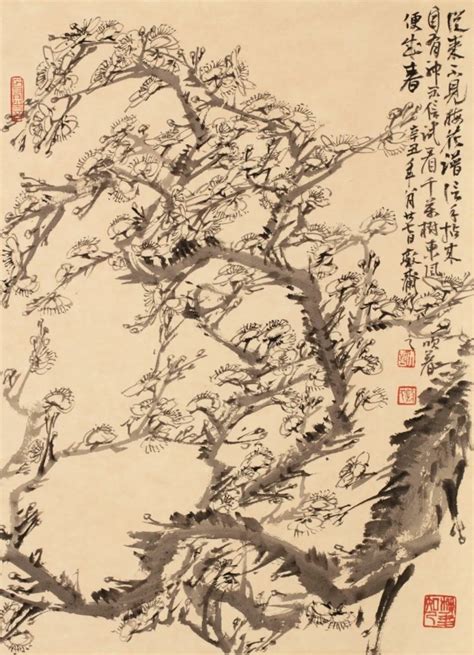 從来不見梅花譜信手拈来
自有神不信試看千萬樹東風吹着
便成春 辛丑年八月廿七日